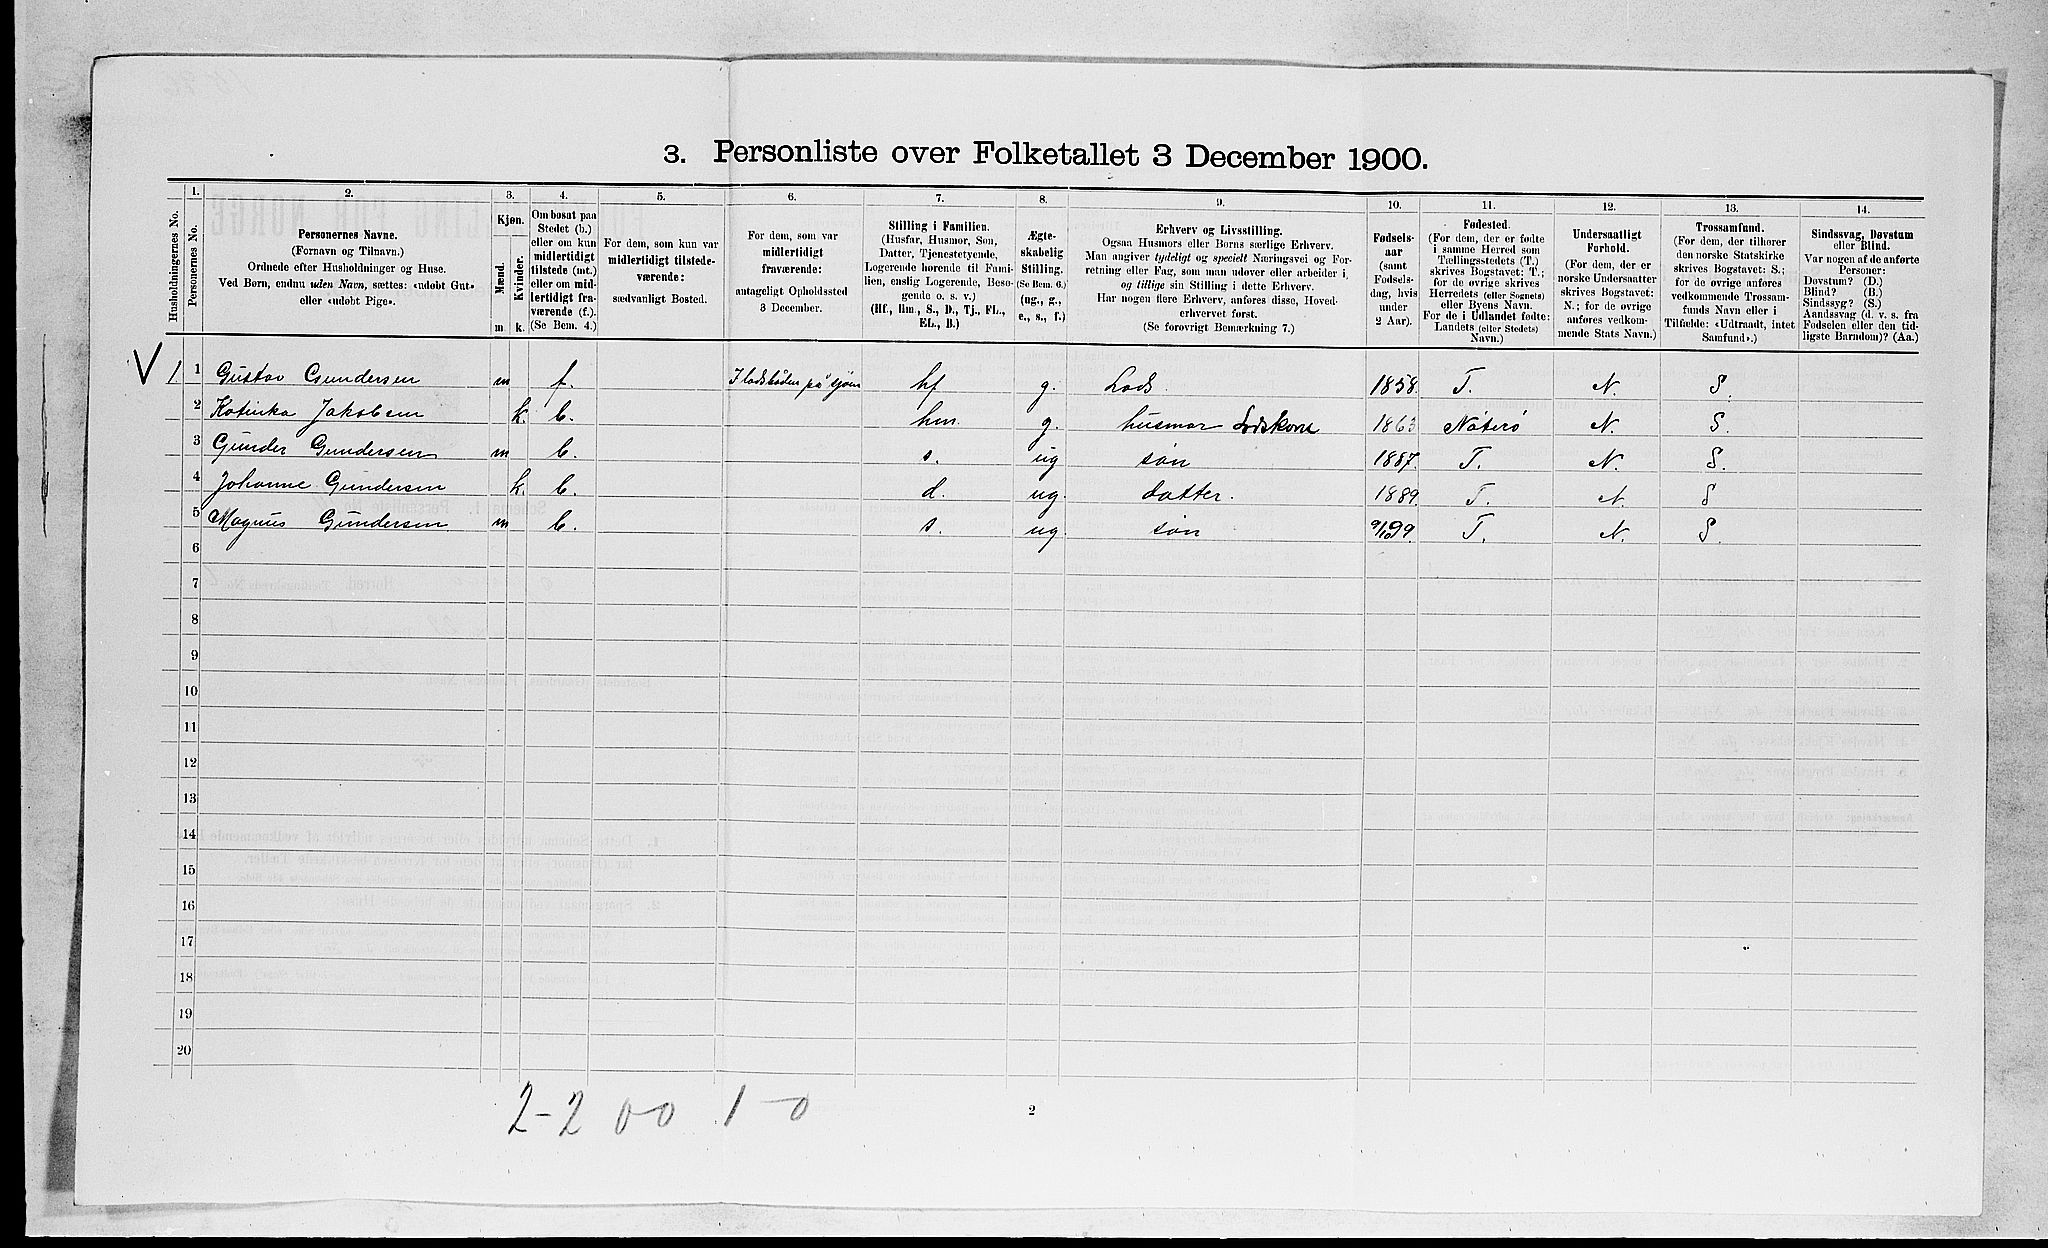 3. Personliste over Folketallet 3 December 1900.
Husholdningernes No.
1. Personernes No.
2. Personernes Navne.
(Fornavn og Tilnavn.)
Ordnede efter Husholdninger og Huse.
Ved Børn, endnu uden Navn, sættes: «udøbt Gut»
eller «udøbt Pige».
3. Kjøn.
Mænd. Kvinder.
m. k.
4. Om bosat paa
Stedet (b.)
eller om kun
midlertidigt
tilstede (mt.)
eller om mid-
lertidigt fra-
værende (f.).
(Se Bem. 4.)
5. For dem, som kun var
midlertidigt tilstede-
værende:
sædvanligt Bosted.
6. For dem, som var
midlertidigt
fraværende:
antageligt Opholdssted
3 December.
7. Stilling i Familien.
(Husfar, Husmor, Søn,
Datter, Tjenestetyende,
Logerende hørende til Fami-
lien, enslig Logerende, Besø-
gende o. s. v.)
(Hf., Hm., S., D., Tj., FL.,
EL., B.)
8. Ægte-
skabelig
Stilling.
(Se Bem. 6.)
(ug., g.,
e., s., f.)
9. Erhverv og Livsstilling.
Ogsaa Husmors eller Børns særlige Erhverv.
Man angiver tydeligt og specielt Næringsvei og For-
retning eller Fag, som man udøver eller arbeider i,
og tillige sin Stilling i dette Erhverv.
Har nogen flere Erhverv, anføres disse, Hoved-
erhvervet først.
(Se forøvrigt Bemærkning 7.)
10. Fødsels-
aar
(samt
Fødsels-
dag, hvis
under
2 Aar).
11. Fødested.
(For dem, der er fødte
i samme Herred som
Tællingsstedets (T.)
skrives Bogstavet: T.;
for de øvrige skrives
Herredets (eller Sognets)
eller Byens Navn.
For de i Udlandet fødte:
Landets (eller Stedets)
Navn.)
12. Undersaatligt
Forhold.
(For dem, der er
norske Undersaatter
skrives Bogstavet:
N.; for de øvrige
anføres vedkom-
mende Stats Navn.)
13. Trossamfund.
(For dem, der tilhører
den norske Statskirke
skrives Bogstavet: S.;
for de øvrige anføres
vedkommende Trossam-
funds Navn eller i
Tilfælde: «Udtraadt, intet
Samfund».)
14. Sindssvag, Døvstum
eller Blind.
Var nogen af de anførte
Personer:
Døvstum? (D.)
Blind? (B.)
Sindssyg? (S.)
Aandssvag (d. v. s. fra
Fødselen eller den tid-
ligste Barndom)? (Aa.)
V 1 1 Gustav Gundersen m f. I lodsbåden på sjøen hf g. Lods. 1858. T. N. S.
2 Katinka Jakobsen k. b. hm. g. husmor Lodskone 1863 Nøterø N. S.
3 Gunder Gundersen m b. s. ug søn 1887. T. N. S.
4 Johanne Gundersen k. b. d. ug. datter. 1889. T. N. S
5 Magnus Gundersen m b. s. ug. søn 9/10 99. T. N. S.
6
7
8
9
10
11
12
13
14
15
16
17
18
19
20
2-2 0-0 1-0
2